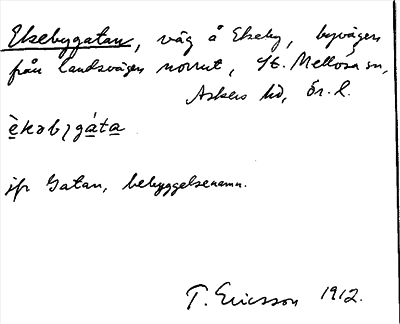 Ekebygatan, väg å Ekeby, byvägen
från landsvägen norrut, St. Mellösa sn,
Askers hd, Ör. l.
èkəbyga̱ta̱
jfr Gatan, bebyggelsenamn.
T. Ericsson 1912.